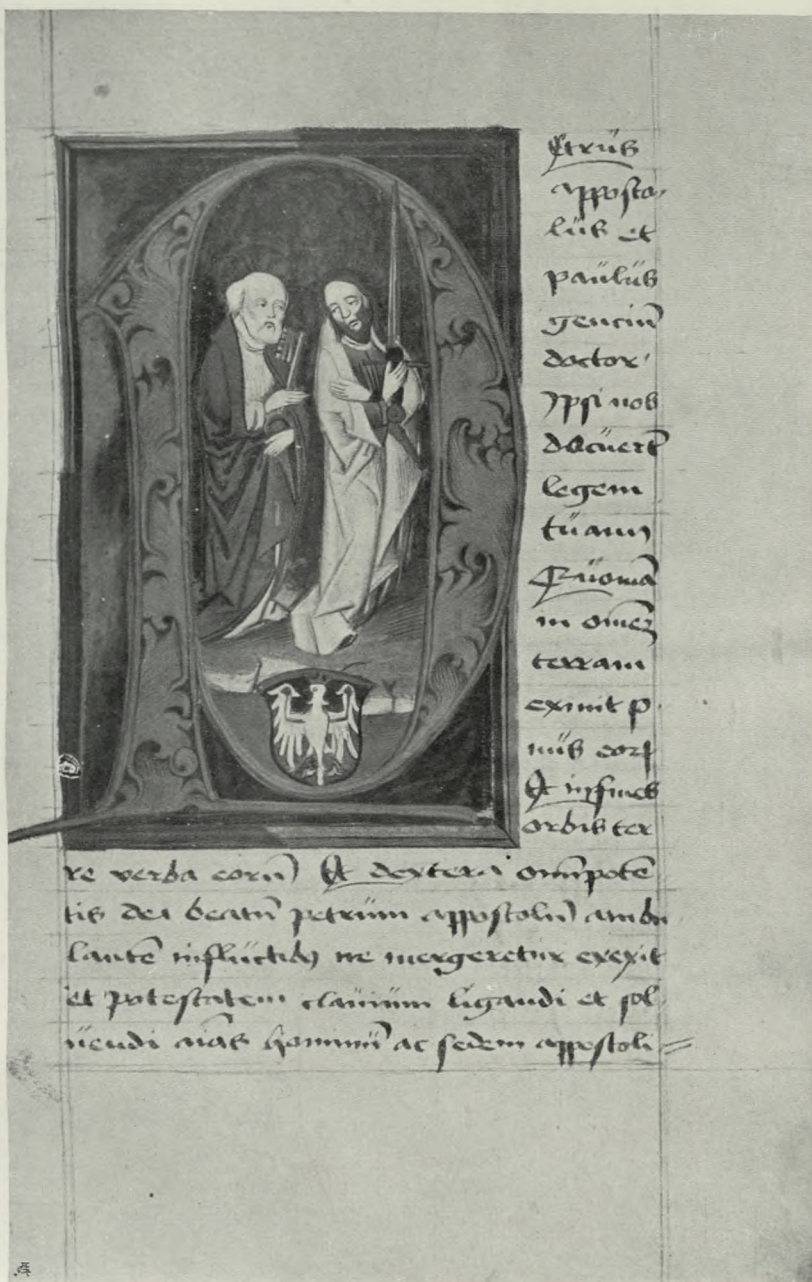 etrüs
apposto
lüs et
paülüs
genciū
doctor
ypsi nos
docüerūt
legem
tüam
Qüoniā
in omēz
terram
exiuit
nüs eorꝝ
Et in fines
orbis ter
re verba eorū Et dextera omīpotē
tis dei beatū petrüm appostolū ambu
lantē in flüctibꝫ ne mergeretur erexit
et potestatem clauium ligandi et sol
üendi aīas hominū ac sedem appostoli